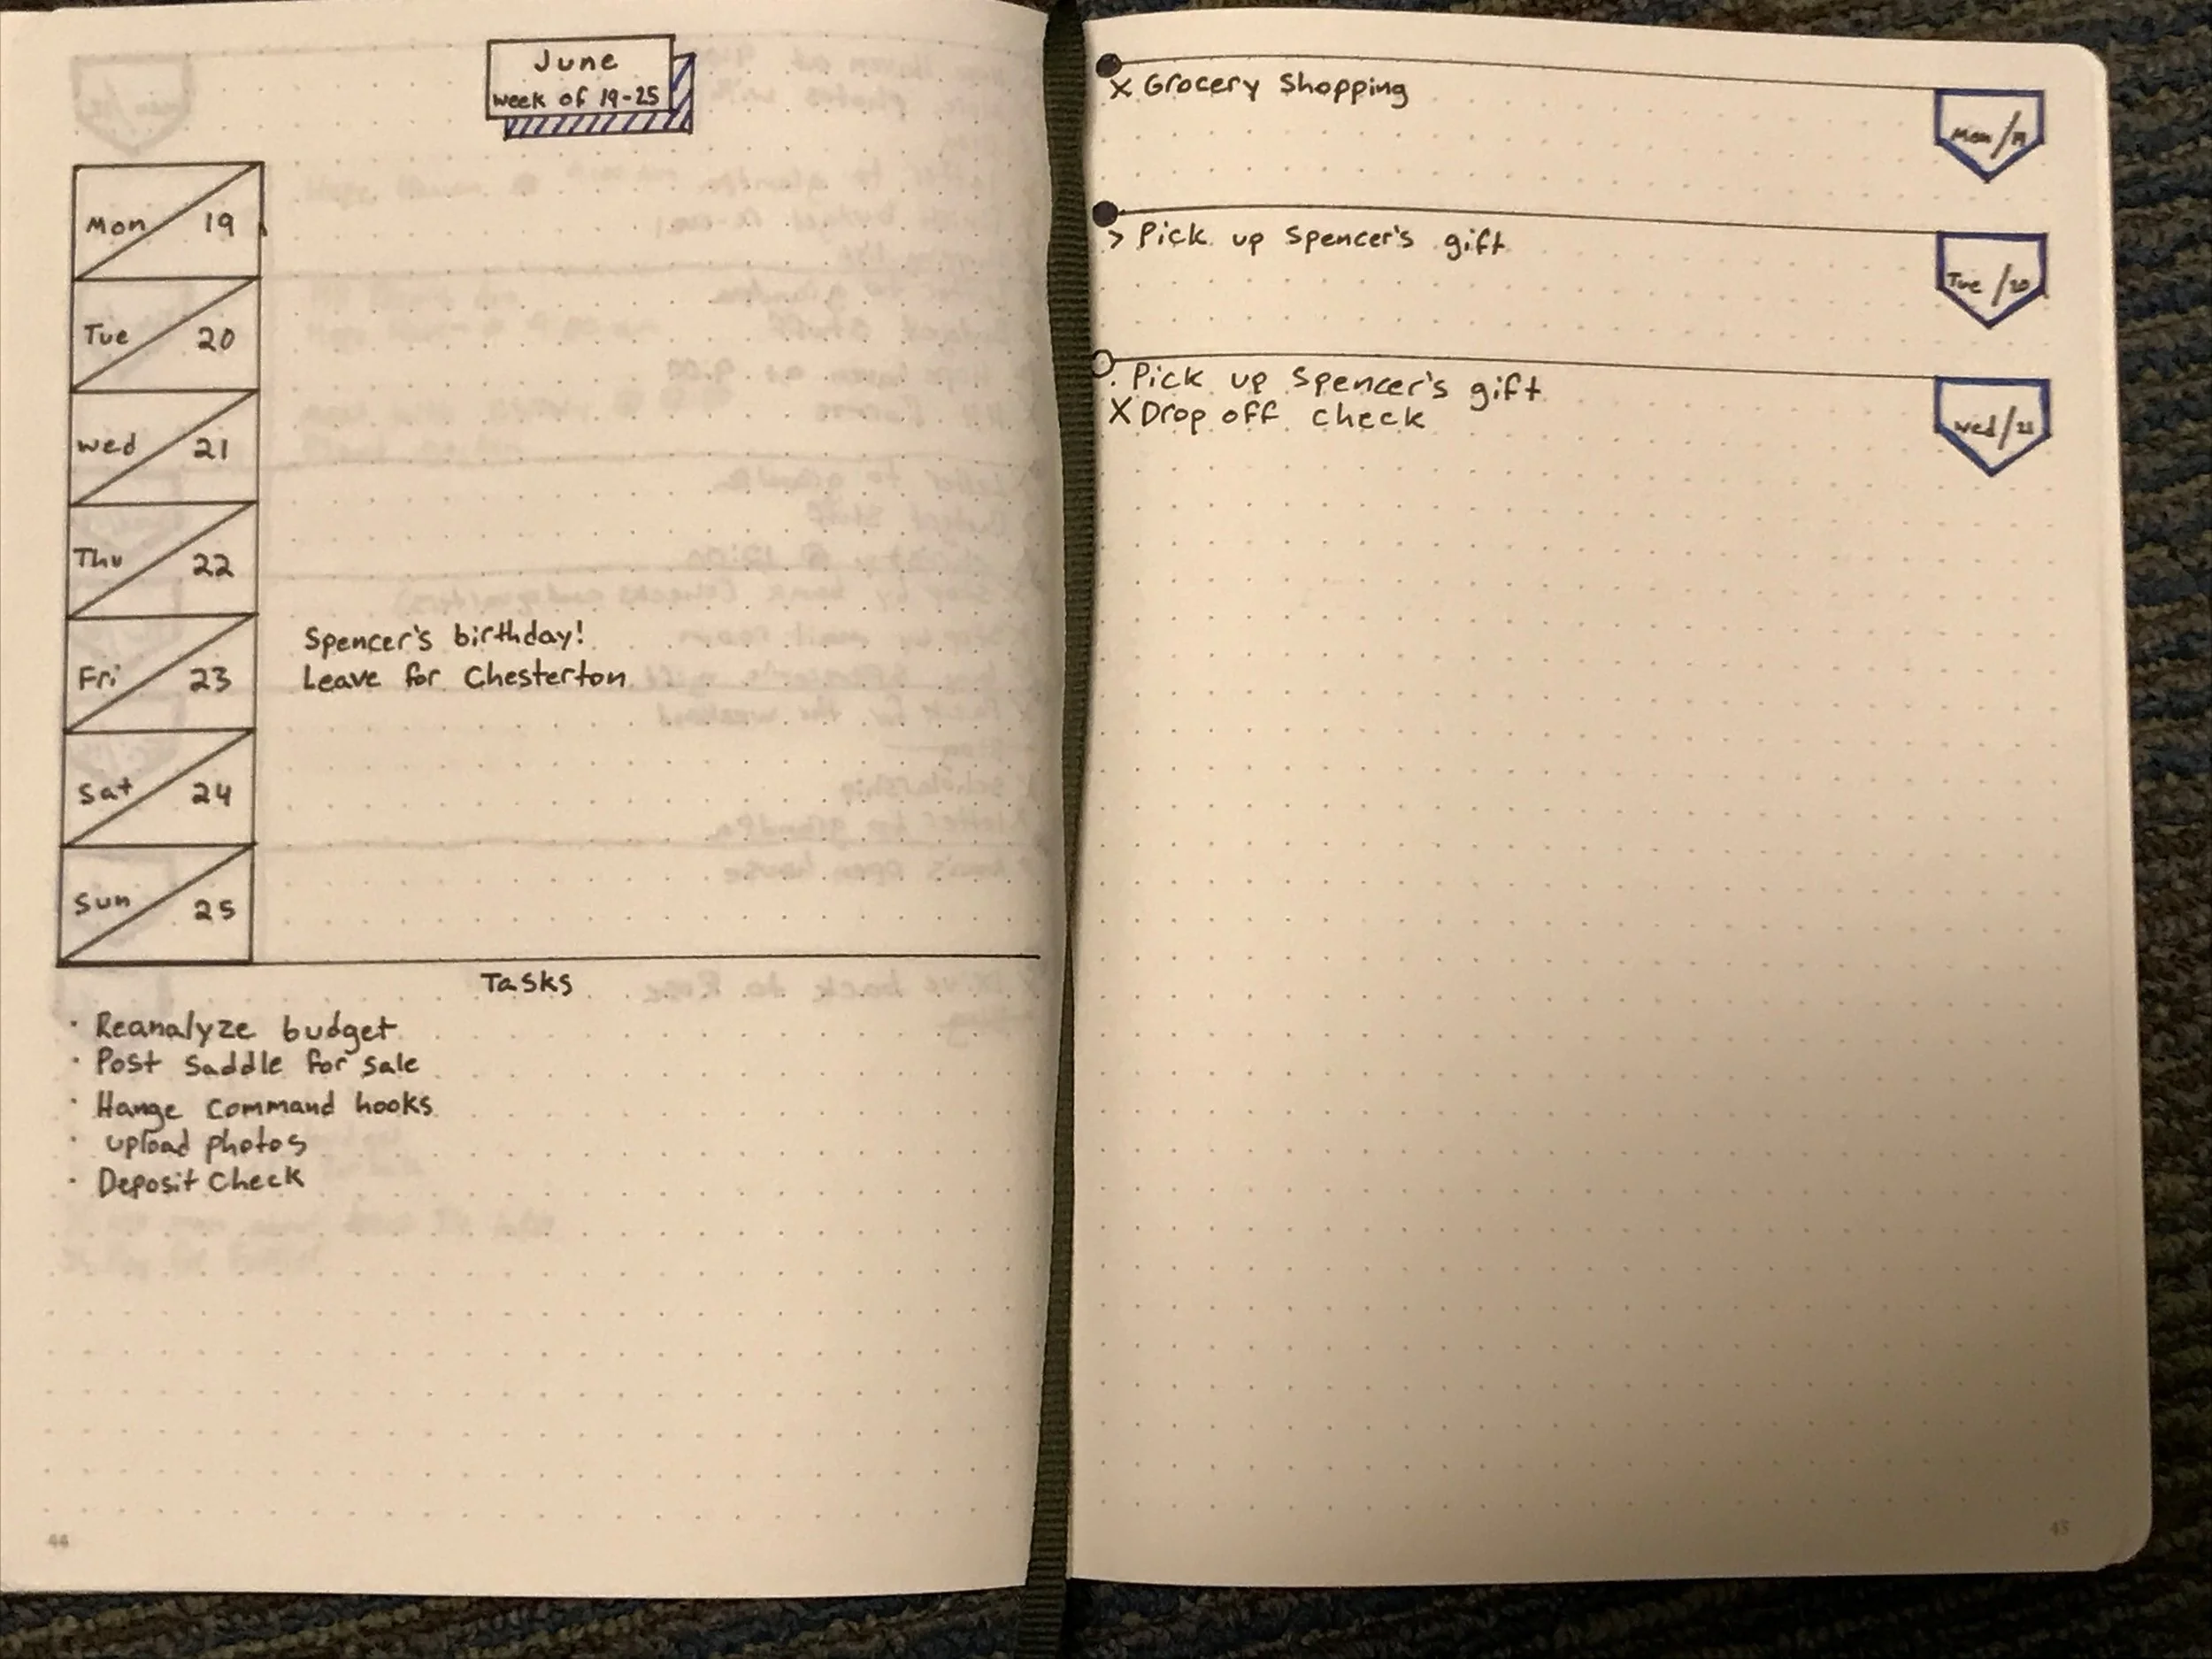 June
week of 19-25
Mon 19
Tue 20
wed 21
Thu 22
Fri 23
Spencer's birthday!
Leave for Chesterton
Sat 24
Sun 25
Tasks
· Reanalyze budget
· Post saddle for sale
· Hange command hooks
· upload photos
· Deposit Check
44
x Grocery Shopping
Mon/19
> Pick up Spencer's gift
Tue/20
. Pick up Spencer's gift
X Drop off check
Wed/21
45